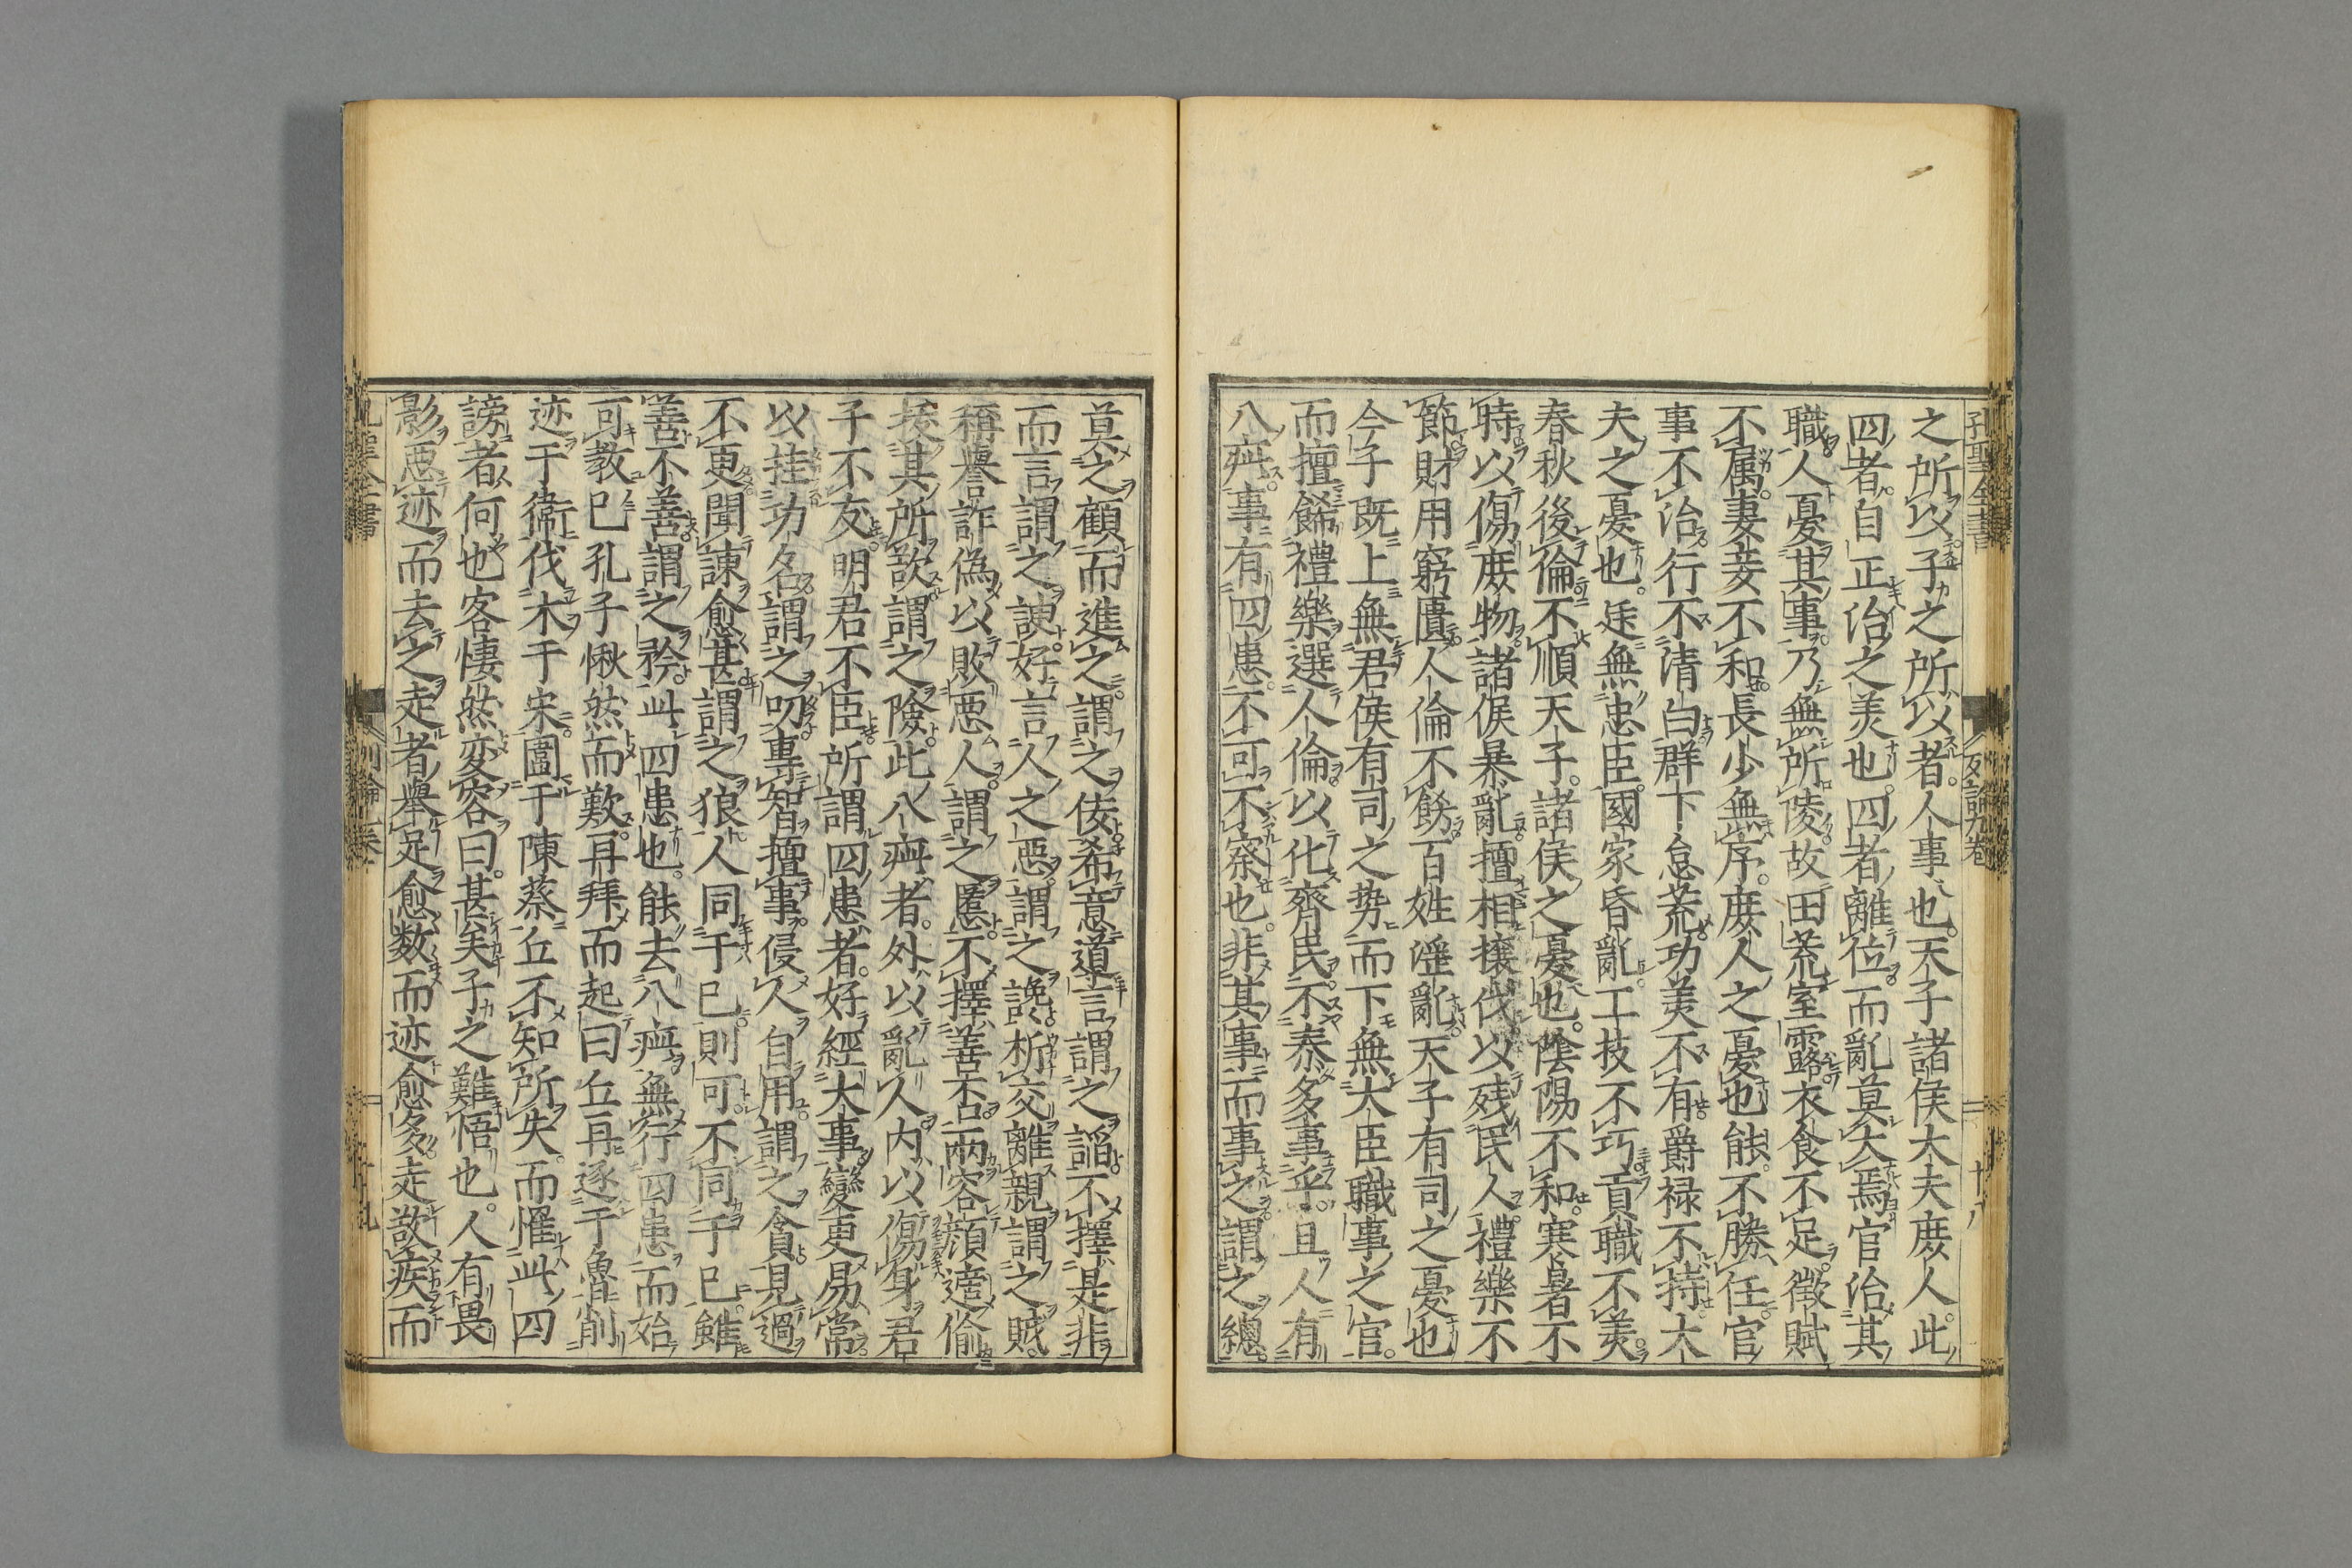 之所以子之所以者人事也天子諸侯大夫庶人此
四者自正治之美也四者離位而亂莫大焉官治其
職人憂其事乃無所陵故田荒室露衣食不足徵賦
不属妻妾不和長少無序庶人之憂也能不勝任官
事不治行不清白群下怠荒功美不有爵禄不持大
夫之憂也廷無忠臣國家昏亂工技不巧貢職不美
春秋後倫不順天子諸侯之憂也陰陽不和寒暑不
時以傷庶物諸侯暴亂擅相攘伐以残民人禮樂不
節財用窮匱人倫不飭百姓淫亂天子有司之憂也
今子既上無君侯有司之势而下無大臣職事之官
而擅餙禮樂選人倫以化齊民不泰多事乎且人有
八疵事有四患不可不察也非其事而事之謂之總
莫之顧而進之謂之佞希意道言謂之謟不擇是非
而言謂之諛好言人之惡謂之讒析交離親謂之賊
稱譽詐偽以敗惡人謂之慝不擇善否兩容顔適偷
拔其所欲謂之險此八疵者外以亂人内以傷身君
子不友明君不臣所謂四患者好經大事變更易常
以挂功名謂之叨專智擅事侵人自用謂之貪見過
不更聞諫愈甚謂之狼人同于已則可不同于已雖
善不善謂之矜此四患也能去八疵無行四患而始
可教已孔子愀然而歎再拜而起曰丘再逐于魯削
迹于衞伐木于宋圍于陳蔡丘不知所失而惟此四
謗者何也客悽然变容曰甚矣子之難悟也人有畏
影惡迹而去之走者舉足愈数而迹愈多走敌疾而
孔聖全書
九巻
十八